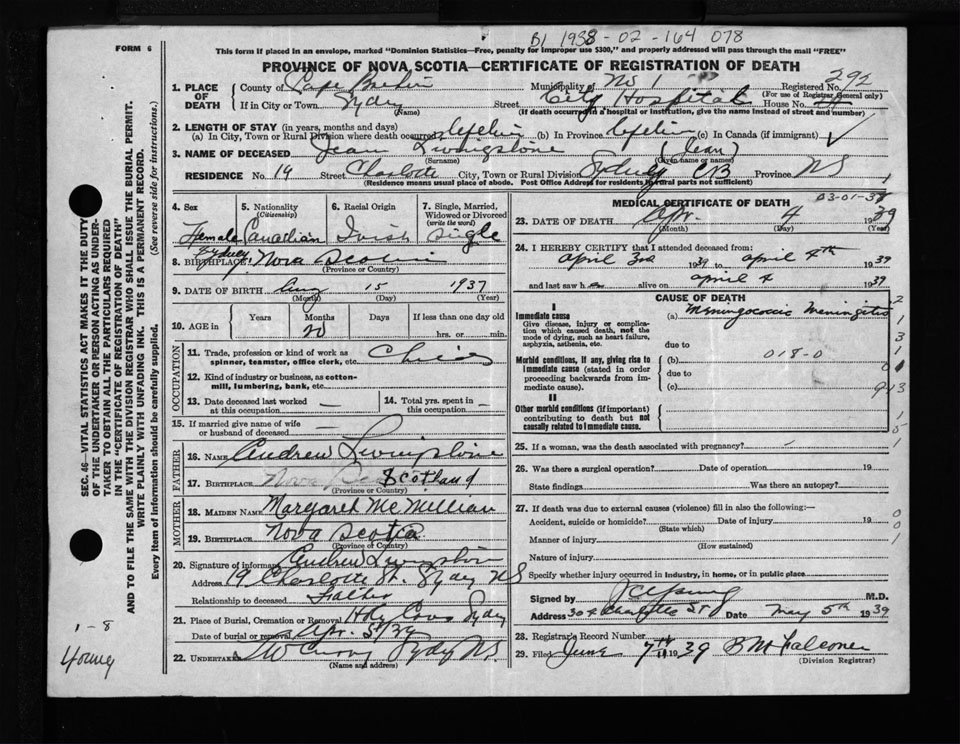 B1 1938-02-164 078
FORM 6
This form if placed in an envelope, marked "Dominion Statistics—Free, penalty for improper use $300," and properly addressed will pass through the mail "FREE"
PROVINCE OF NOVA SCOTIA—CERTIFICATE OF REGISTRATION OF DEATH
SEC. 46—VITAL STATISTICS ACT MAKES IT THE DUTY
OF THE UNDERTAKER OR PERSON ACTING AS UNDER-
TAKER TO OBTAIN ALL THE PARTICULARS REQUIRED
IN THE "CERTIFICATE OF REGISTRATION OF DEATH"
AND TO FILE THE SAME WITH THE DIVISION REGISTRAR WHO SHALL ISSUE THE BURIAL PERMIT.
WRITE PLAINLY WITH UNFADING INK. THIS IS A PERMANENT RECORD.
Every item of information should be carefully supplied. (See reverse side for instructions.)
1-8
Young
1. PLACE OF DEATH County of Cape Breton Municipality of No 1 Registered No. 292
(For use of Registrar General only)
If in City or Town Sydney Street City Hospital House No.
(Name) (If death occurred in a hospital or institution, give the name instead of street and number)
2. LENGTH OF STAY (in years, months and days)
(a) In City, Town or Rural Division where death occurred Lifetime (b) In Province Lifetime (c) In Canada (if immigrant)
3. NAME OF DECEASED Jean Livingstone (Jean)
(Surname) (Given name or names)
RESIDENCE No. 19 Street Charlotte City, Town or Rural Division Sydney CB Province NS
(Residence means usual place of abode. Post Office Address for residents in rural parts not sufficient)
4. Sex 5. Nationality (Citizenship) 6. Racial Origin 7. Single, Married, Widowed or Divorced (write the word)
Female Canadian Irish Single
8. BIRTHPLACE Sydney, Nova Scotia
(Province or Country)
9. DATE OF BIRTH Aug 15 1937
(Month) (Day) (Year)
10. AGE in Years Months Days If less than one day old
20 hrs. or min.
OCCUPATION
11. Trade, profession or kind of work as spinner, teamster, office clerk, etc. Child
12. Kind of industry or business, as cotton-mill, lumbering, bank, etc.
13. Date deceased last worked at this occupation 14. Total yrs. spent in this occupation
15. If married give name of wife or husband of deceased
FATHER
16. NAME Andrew Livingstone
17. BIRTHPLACE Scotland
(Province or Country)
MOTHER
18. MAIDEN NAME Margaret McMillian
19. BIRTHPLACE Nova Scotia
(Province or Country)
20. Signature of informant Andrew Livingston
Address 19 Charlotte St. Sydney NS
Relationship to deceased Father
21. Place of Burial, Cremation or Removal Holy Cross Sydney
Date of burial or removal Apr. 5/39
22. UNDERTAKER Sydney NS.
(Name and address)
MEDICAL CERTIFICATE OF DEATH
03-01-37
23. DATE OF DEATH Apr. 4 1939
(Month) (Day) (Year)
24. I HEREBY CERTIFY that I attended deceased from:
April 3rd 1939 to April 4th 1939
and last saw h alive on April 4 1939
CAUSE OF DEATH
I
Immediate cause (a) Meningococcic Meningitis
Give disease, injury or complication which caused death, not the mode of dying, such as heart failure, asphyxia, asthenia, etc.
due to
Morbid conditions, if any, giving rise to Immediate cause (stated in order proceeding backwards from immediate cause).
(b) 018-0
due to
(c)
II
Other morbid conditions (if important) contributing to death but not causally related to Immediate cause.
25. If a woman, was the death associated with pregnancy?
26. Was there a surgical operation? Date of operation 19
State findings Was there an autopsy?
27. If death was due to external causes (violence) fill in also the following:—
Accident, suicide or homicide? Date of injury 19
(State which)
Manner of injury
(How sustained)
Nature of injury
Specify whether injury occurred in industry, in home, or in public place
Signed by Young M.D.
Address 304 Charlotte St Date May 5th 1939
28. Registrar's Record Number
29. Filed June 7th 1939 B M Falconer
(Division Registrar)